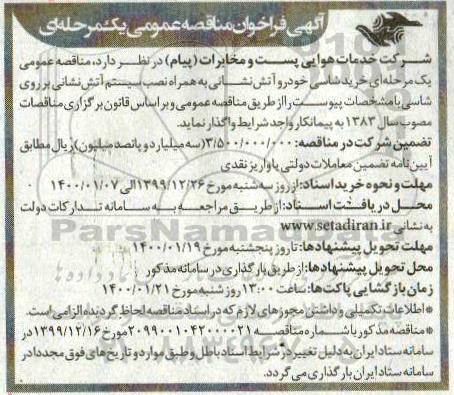 آگهی فراخوان مناقصه عمومی یک مرحله‌ای
شرکت خدمات هوایی پست و مخابرات (پیام) در نظر دارد، مناقصه عمومی
یک مرحله‌ای خرید شاسی خودرو آتش نشانی به همراه نصب سیستم آتش نشانی بر روی
شاسی با مشخصات پیوست را از طریق مناقصه عمومی و بر اساس قانون برگزاری مناقصات
مصوب سال ۱۳۸۳ به پیمانکار واجد شرایط واگذار نماید.
تضمین شرکت در مناقصه: ۳/۵۰۰/۰۰۰/۰۰۰ (سه میلیارد و پانصد میلیون) ریال مطابق
آیین نامه تضمین معاملات دولتی یا واریز نقدی
مهلت و نحوه خرید اسناد: از روز سه شنبه مورخ ۱۳۹۹/۱۲/۲۶ الی ۱۴۰۰/۰۱/۰۷
محل دریافت اسناد: از طریق مراجعه به سامانه تدارکات دولت
به نشانی www.setadiran.ir
مهلت تحویل پیشنهادها: تا روز پنجشنبه مورخ ۱۴۰۰/۰۱/۱۹
محل تحویل پیشنهادها: از طریق بارگذاری در سامانه مذکور
زمان بازگشایی پاکت‌ها: ساعت ۱۳:۰۰ روز شنبه مورخ ۱۴۰۰/۰۱/۲۱
* اطلاعات تکمیلی و داشتن مجوزهای لازم که در اسناد مناقصه لحاظ گردیده الزامی است.
* مناقصه مذکور با شماره مناقصه ۲۰۹۹۰۰۱۰۴۲۰۰۰۰۲۱ مورخ ۱۳۹۹/۱۲/۱۶ در
سامانه ستاد ایران به دلیل تغییر در شرایط اسناد باطل و طبق موارد و تاریخ های فوق مجددا در
سامانه ستاد ایران بارگذاری می گردد.
ParsNamad